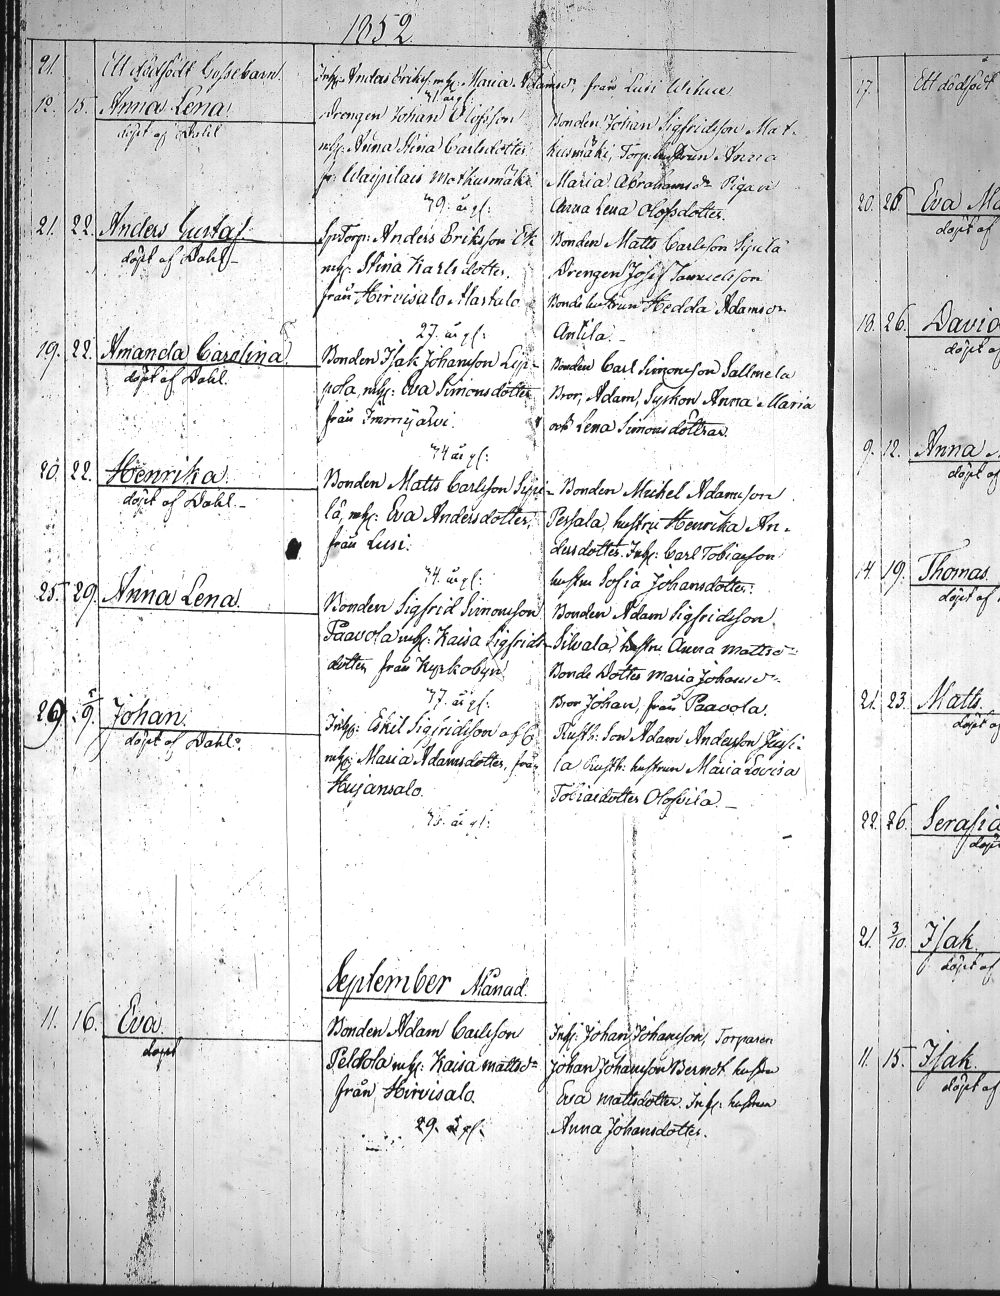 1852
21. Ett dödfödt Gossebarn. Inhs: Anders Eriks. mhs: Maria Adamsdr från Lusi
41. år gl:
12. 15. Anna Lena. Drengen Johan Olofsson Bonden Johan Sigfridsson Mat-
döpt af Dahl mhs: Anna Stina Carlsdotter kusmäki, Torp: hustrun Anna
fr: Matkusmäki Maria Abrahamsdr Pigan
29. år gl: Anna Lena Olofsdotter.
21. 22. Anders Gustaf. Anders Eriksson Bonden Matts Carlsson Sipilä
döpt af Dahl mhs: Stina Karlsdotter. Drengen Josef Samuelsson
från Hirvisalo Bonde hustrun Hedda Adamsdr
27. år gl: Antila.
19. 22. Amanda Carolina. Bonden Isak Johansson Lep- Bonden Carl Simonsson
döpt af Dahl. pola, mhs: Eva Simonsdotter Bror, Adam, Syskon Anna Maria
från Immijärvi. och Lena Simonsdöttrar.
44 år gl:
20. 22. Henrika. Bonden Matts Carlsson Sipi- Bonden Mickel Adamsson
döpt af Dahl. lä, mhs: Eva Andersdotter, hustru Henrika An-
från Lusi. dersdotter. Inhs: Carl Tobiasson
34. år gl: hustru Sofia Johansdotter.
25. 29. Anna Lena. Bonden Sigfrid Simonsson Bonden Adam Sigfridsson
Paavola mhs: Kaisa Sigfrids- hustru Anna Mattsdr
dotter från Kyrkobyn Bonde Dotter Maria Johansdr
37. år gl: Bror Johan, från Paavola.
29. 5/9. Johan. Inhs: Eskil Sigfridsson Son Adam Andersson Jussi-
döpt af Dahl. mhs: Maria Adamsdotter, från la hustrun Maria Lovisa
Tobiasdotter Olofsila.
år gl:
September Månad.
11. 16. Eva Bonden Adam Carlsson Inhs: Johan Johansson, Torparen
döpt Peldola mhs: Kaisa Mattsdr Johan Johansson Berndt hustru
från Hirvisalo. Eva Mattsdotter. Inhs: hustrun
29. år gl. Anna Johansdotter.
17. Ett dödfödt
20. 26 Eva
döpt af
18. 26. David
döpt af
9. 12. Anna
döpt af
14. 19. Thomas
döpt af
21. 23. Matts
döpt af
22. 26. Serafia
döpt
21. 3/10. Isak
döpt af
11. 15. Isak
döpt af